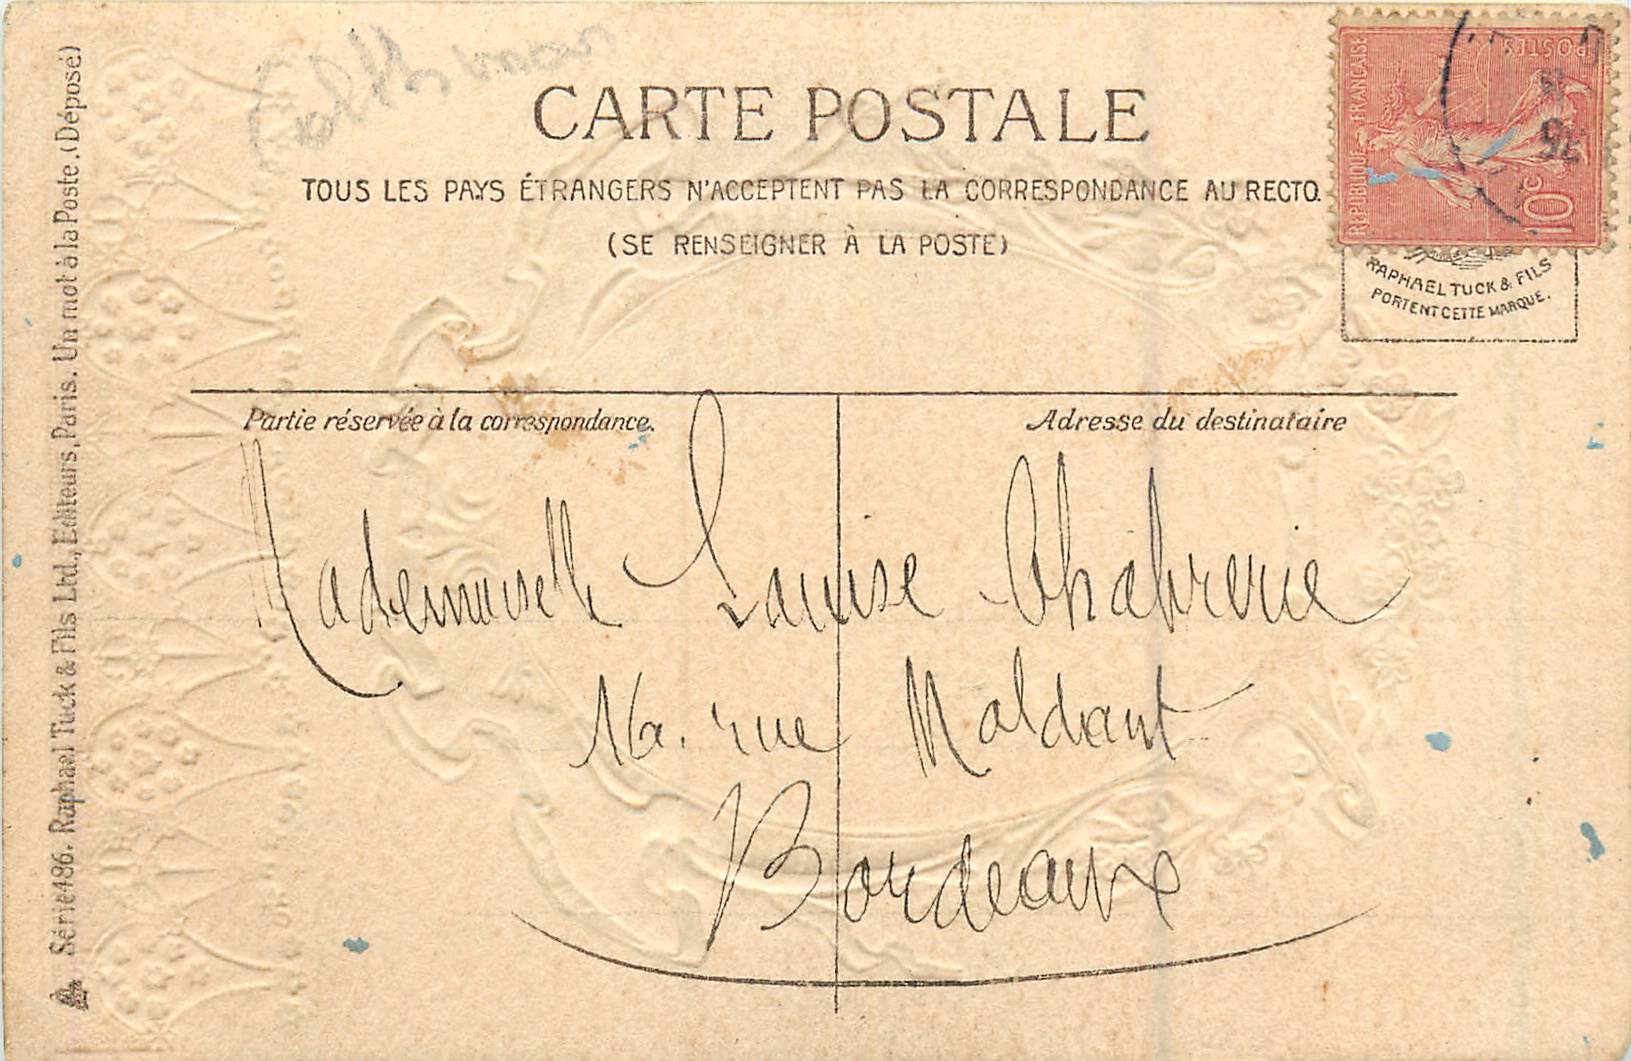 CARTE POSTALE
TOUS LES PAYS ÉTRANGERS N'ACCEPTENT PAS LA CORRESPONDANCE AU RECTO.
(SE RENSEIGNER À LA POSTE)
RÉPUBLIQUE FRANÇAISE
POSTES
10c
RAPHAEL TUCK & FILS
PORTENT CETTE MARQUE.
Partie réservée à la correspondance.
Adresse du destinataire
Mademoiselle Louise Chabrerie
16. rue Maldant
Bordeaux
Série 486. Raphael Tuck & Fils Ltd., Editeurs, Paris. Un mot à la Poste. (Déposé)